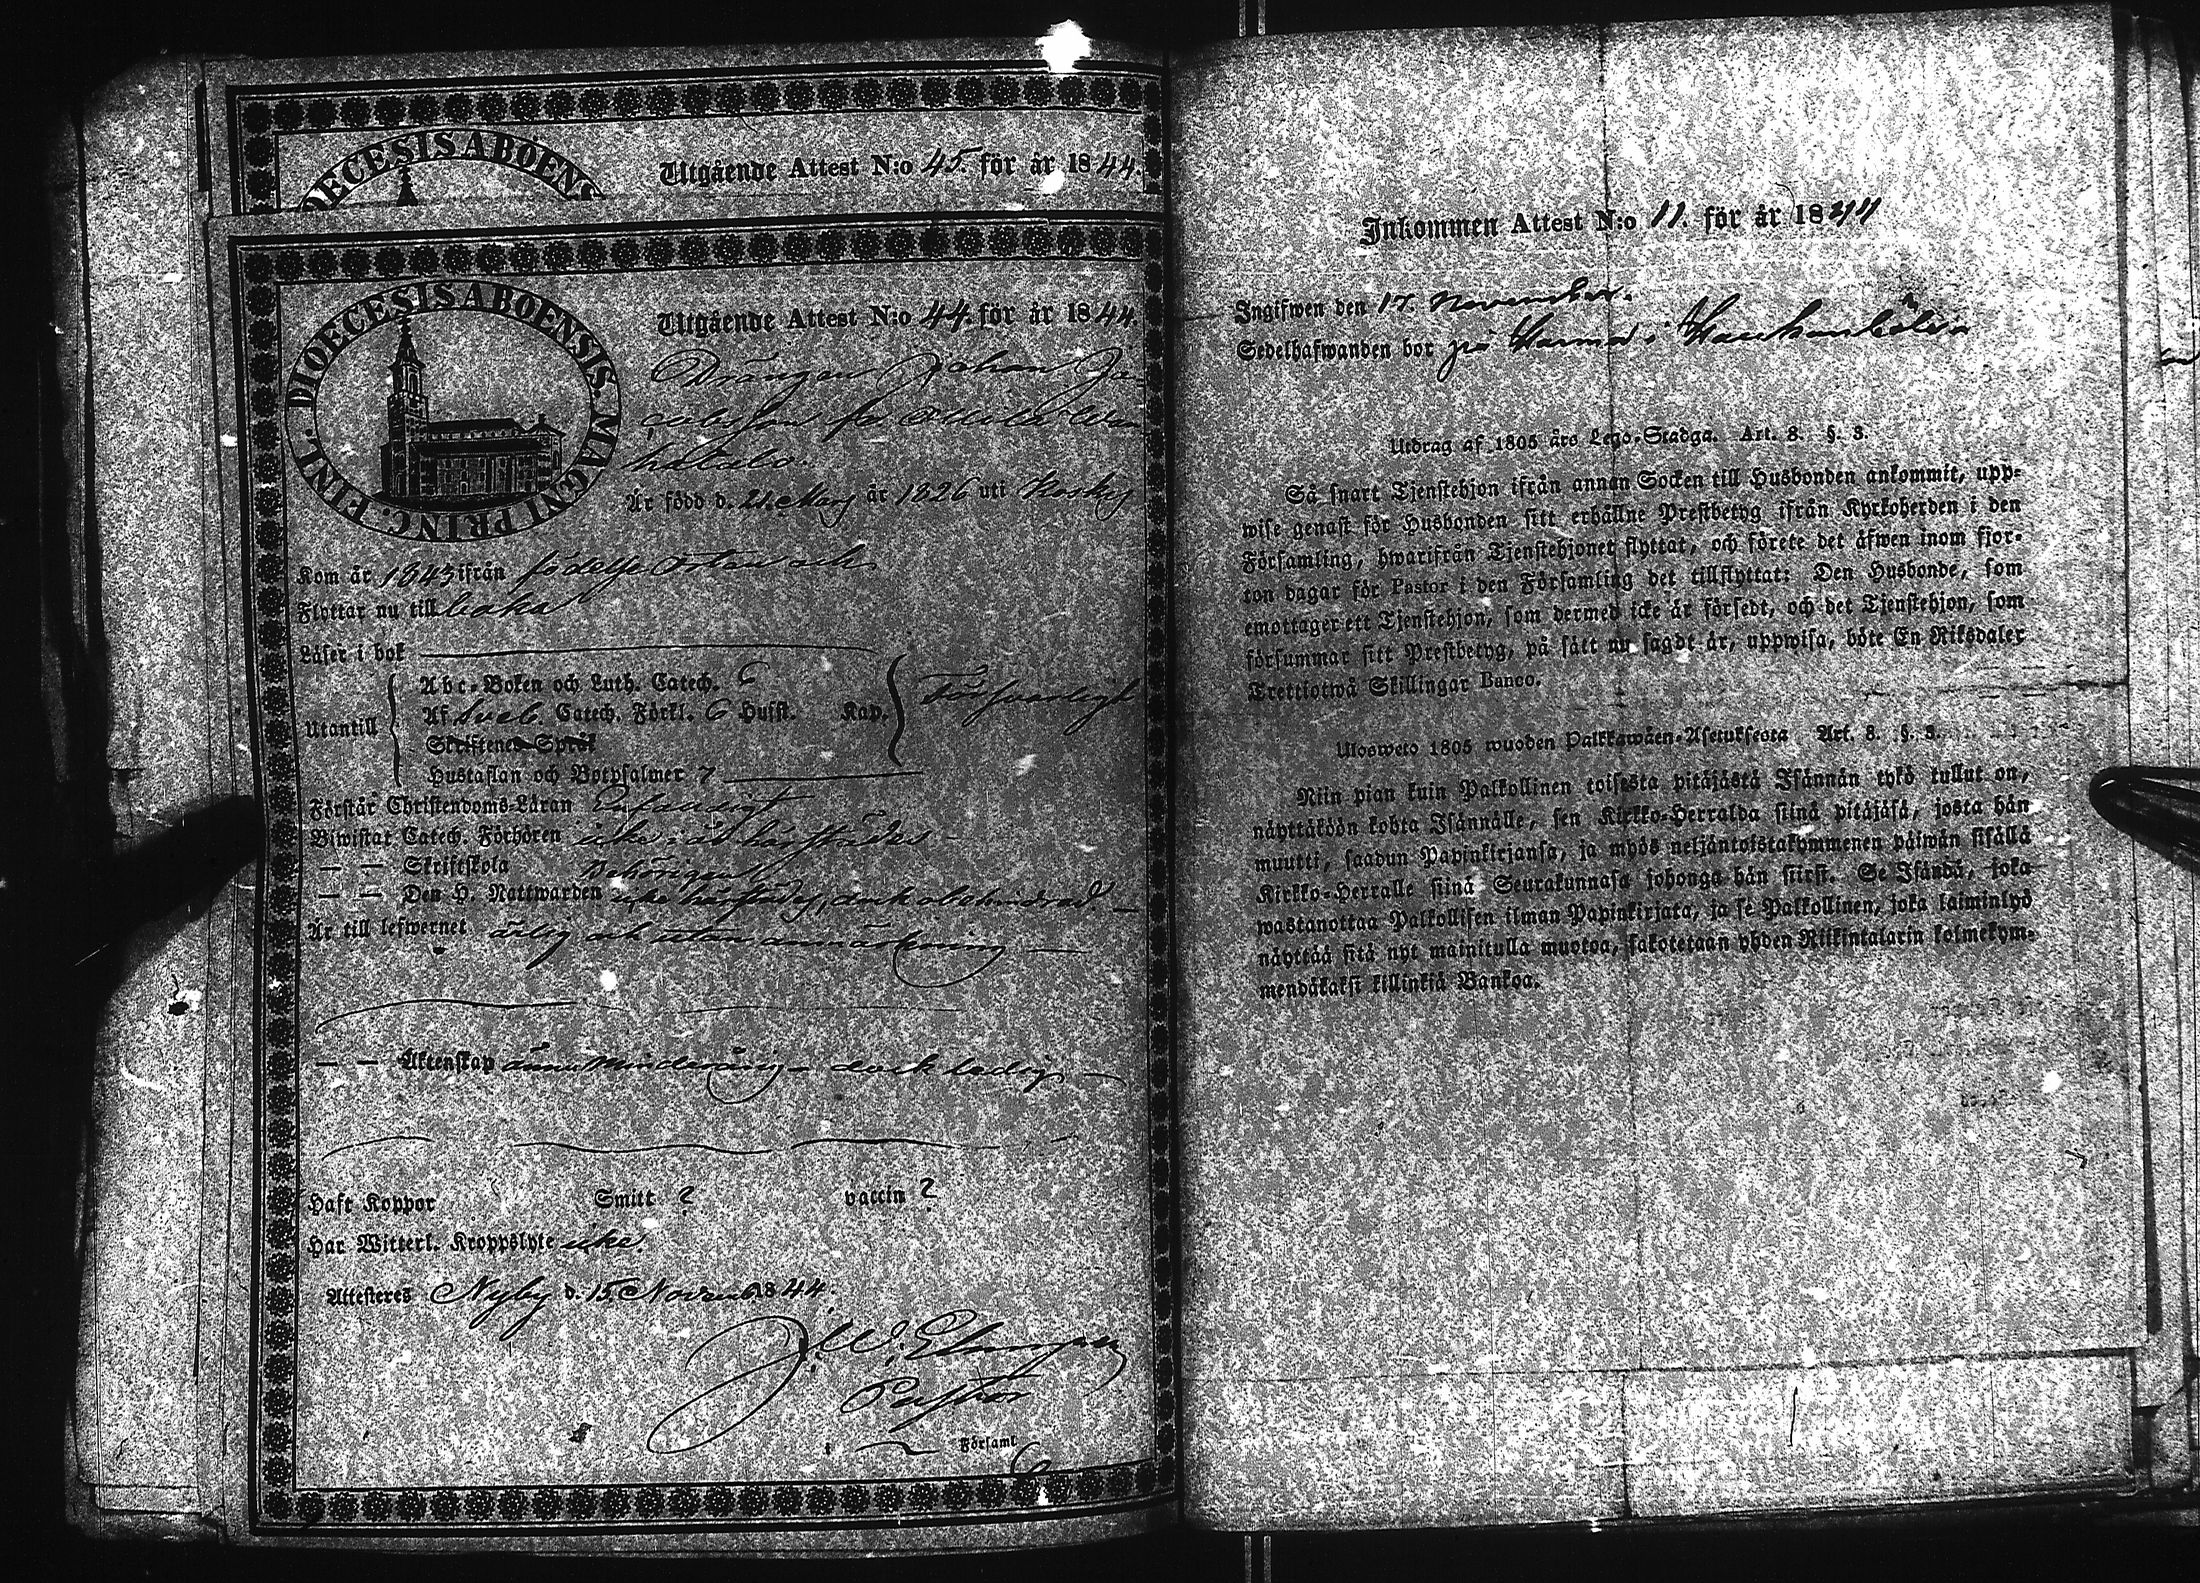 DIOECESIS ABOENS
Utgående Attest N:o 45. för år 1844.
DIOECESIS ABOENSIS. MAGNI PRINC. FINL.
Utgående Attest N:o 44. för år 1844.
Drängen Johan Ja-
cobsson fr.
Är född d. 21. Maij år 1826 uti Koskis
Kom år 1843 ifrån födelse Orten och
Flyttar nu till baka
Läser i bok
Utantill
Abc-Boken och Luth. Catech. 6
Af Sveb. Catech. Förkl. 6 Hufst. Kap.
Skriftenes Språk
Hustaflan och Botpsalmer 7
Försvarligt
Förstår Christendoms-Läran Enfaldigt
Biwistat Catech. Förhören icke i år härstädes
— — Skriftskola Behörigen
— — Den H. Nattwarden icke härstädes, dock obehindrad.
Är till lefwernet ärlig och utan anmärkning
— — Äktenskap ännu Minderårig - dock ledig
Haft Koppor Smitt ? vaccin ?
Har Witterl. Kroppslyte icke.
Attesteres Nyby d. 15. Novemb. 1844.
J. W.
Pastor
i Församl.
Inkommen Attest N:o 11. för år 1844
Ingifwen den 17. November.
Sedelhafwanden bor på i
Utdrag af 1805 års Lego-Stadga. Art. 8. §. 3.
Så snart Tjenstehjon ifrån annan Socken till Husbonden ankommit, upp-
wise genast för Husbonden sitt erhållne Prestbetyg ifrån Kyrkoherden i den
Församling, hwarifrån Tjenstehjonet flyttat, och förete det äfwen inom fjor-
ton dagar för Pastor i den Församling det tillflyttat: Den Husbonde, som
emottager ett Tjenstehjon, som dermed icke är försedt, och det Tjenstehjon, som
försummar sitt Prestbetyg, på sätt nu sagdt är, uppwisa, böte En Riksdaler
Trettiotwå Skillingar Banco.
Ulosweto 1805 wuoden Palkkawäen-Asetuksesta Art. 8. §. 3.
Niin pian kuin Palkollinen toisesta pitäjästä Isännän tykö tullut on,
näyttäköön kohta Isännälle, sen Kirkko-Herralda siinä pitäjäsä, josta hän
muutti, saadun Papinkirjansa, ja myös neljäntoistakymmenen päiwän sisällä
Kirkko-Herralle siinä Seurakunnasa johonga hän siirsi. Se Isändä, joka
wastanottaa Palkollisen ilman Papinkirjata, ja se Palkollinen, joka laiminlyö
näyttää sitä nyt mainitulla muotoa, sakotetaan yhden Riikintalarin kolmekym-
mendäkaksi killinkiä Bankoa.